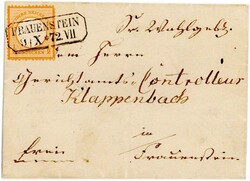 FRAUENSTEIN
72.VII
Sr. Wohlgeb.
Dem Herrn
Gerichtsamts-Controlleur
Klappenbach
in
frei
Frauenstein.